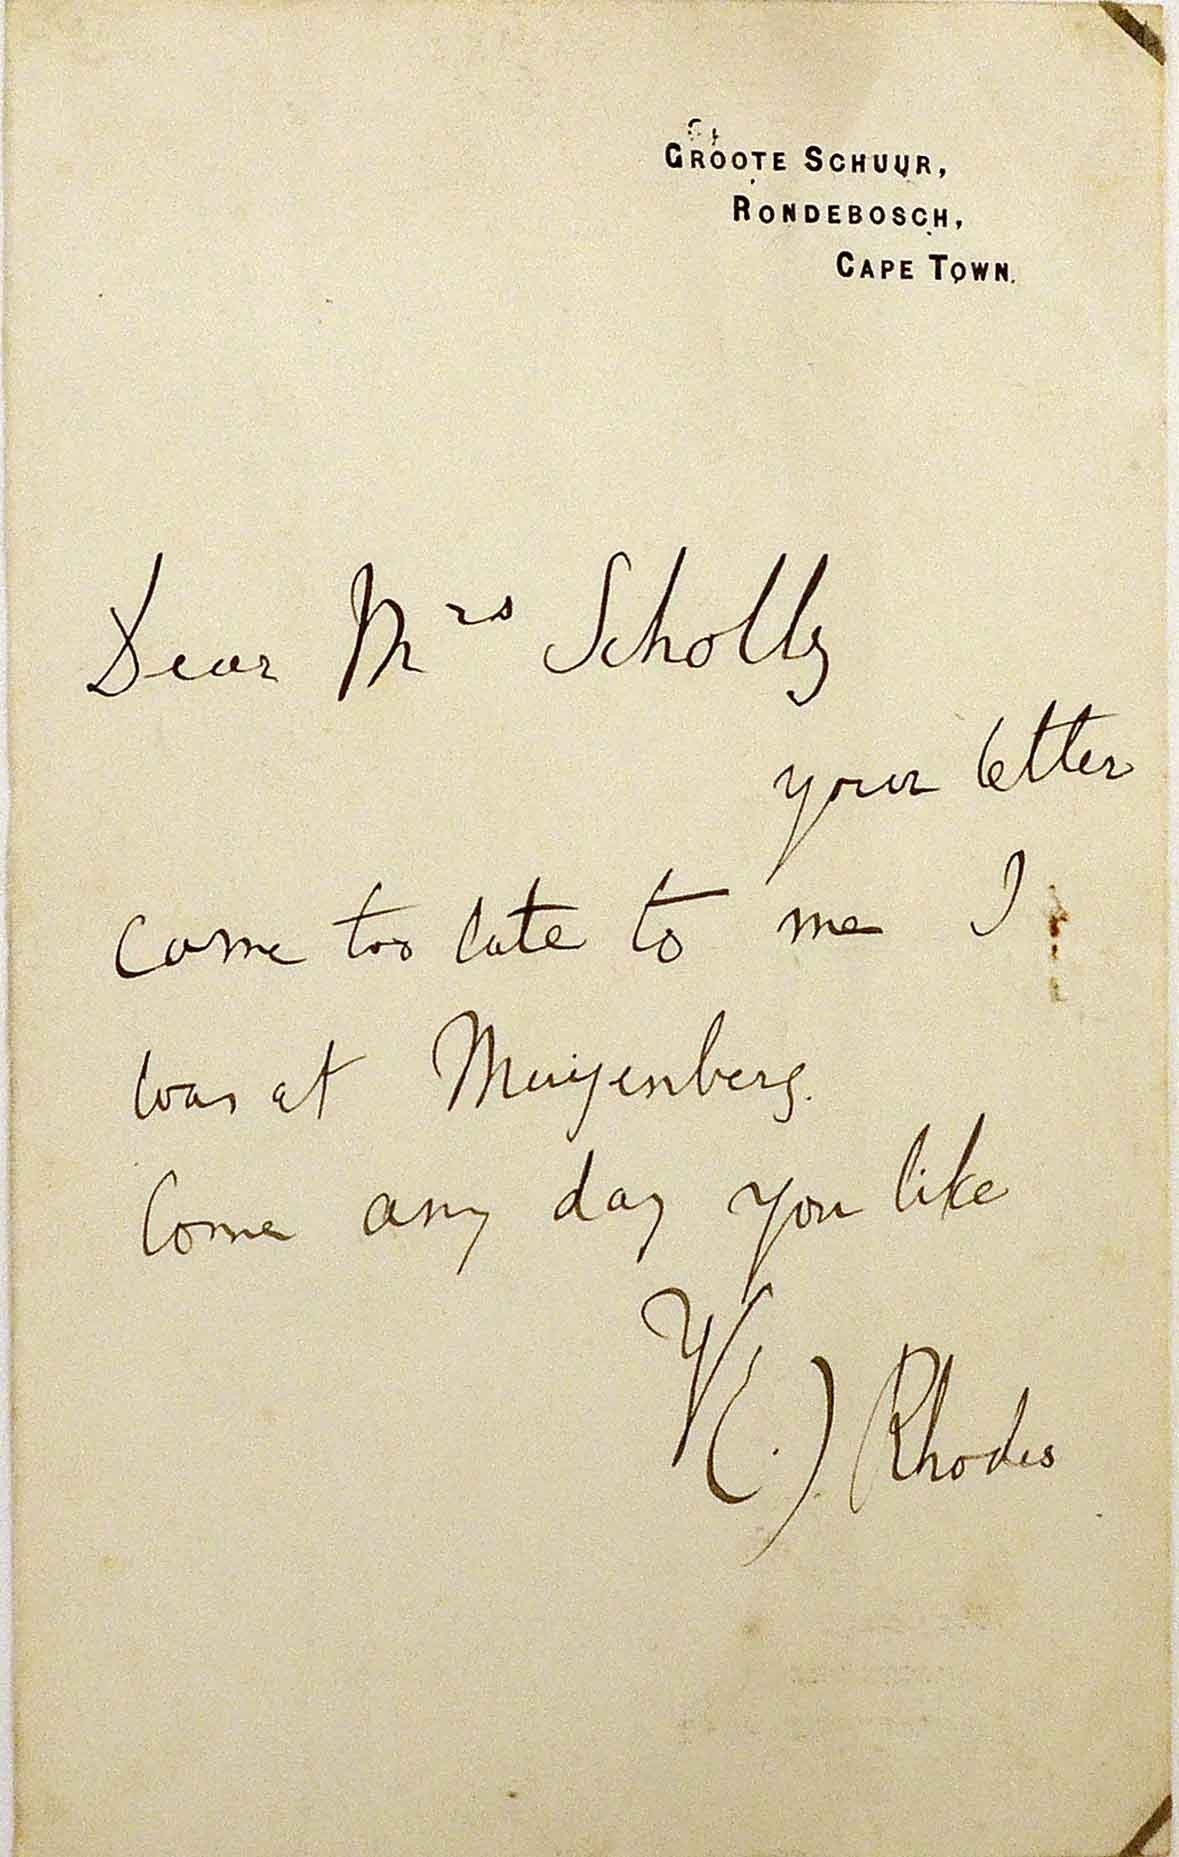 GROOTE SCHUUR,
RONDEBOSCH,
CAPE TOWN.
Dear Mrs Scholtz
your letter
came too late to me I
was at Muizenberg.
Come any day you like
Y( . ) Rhodes